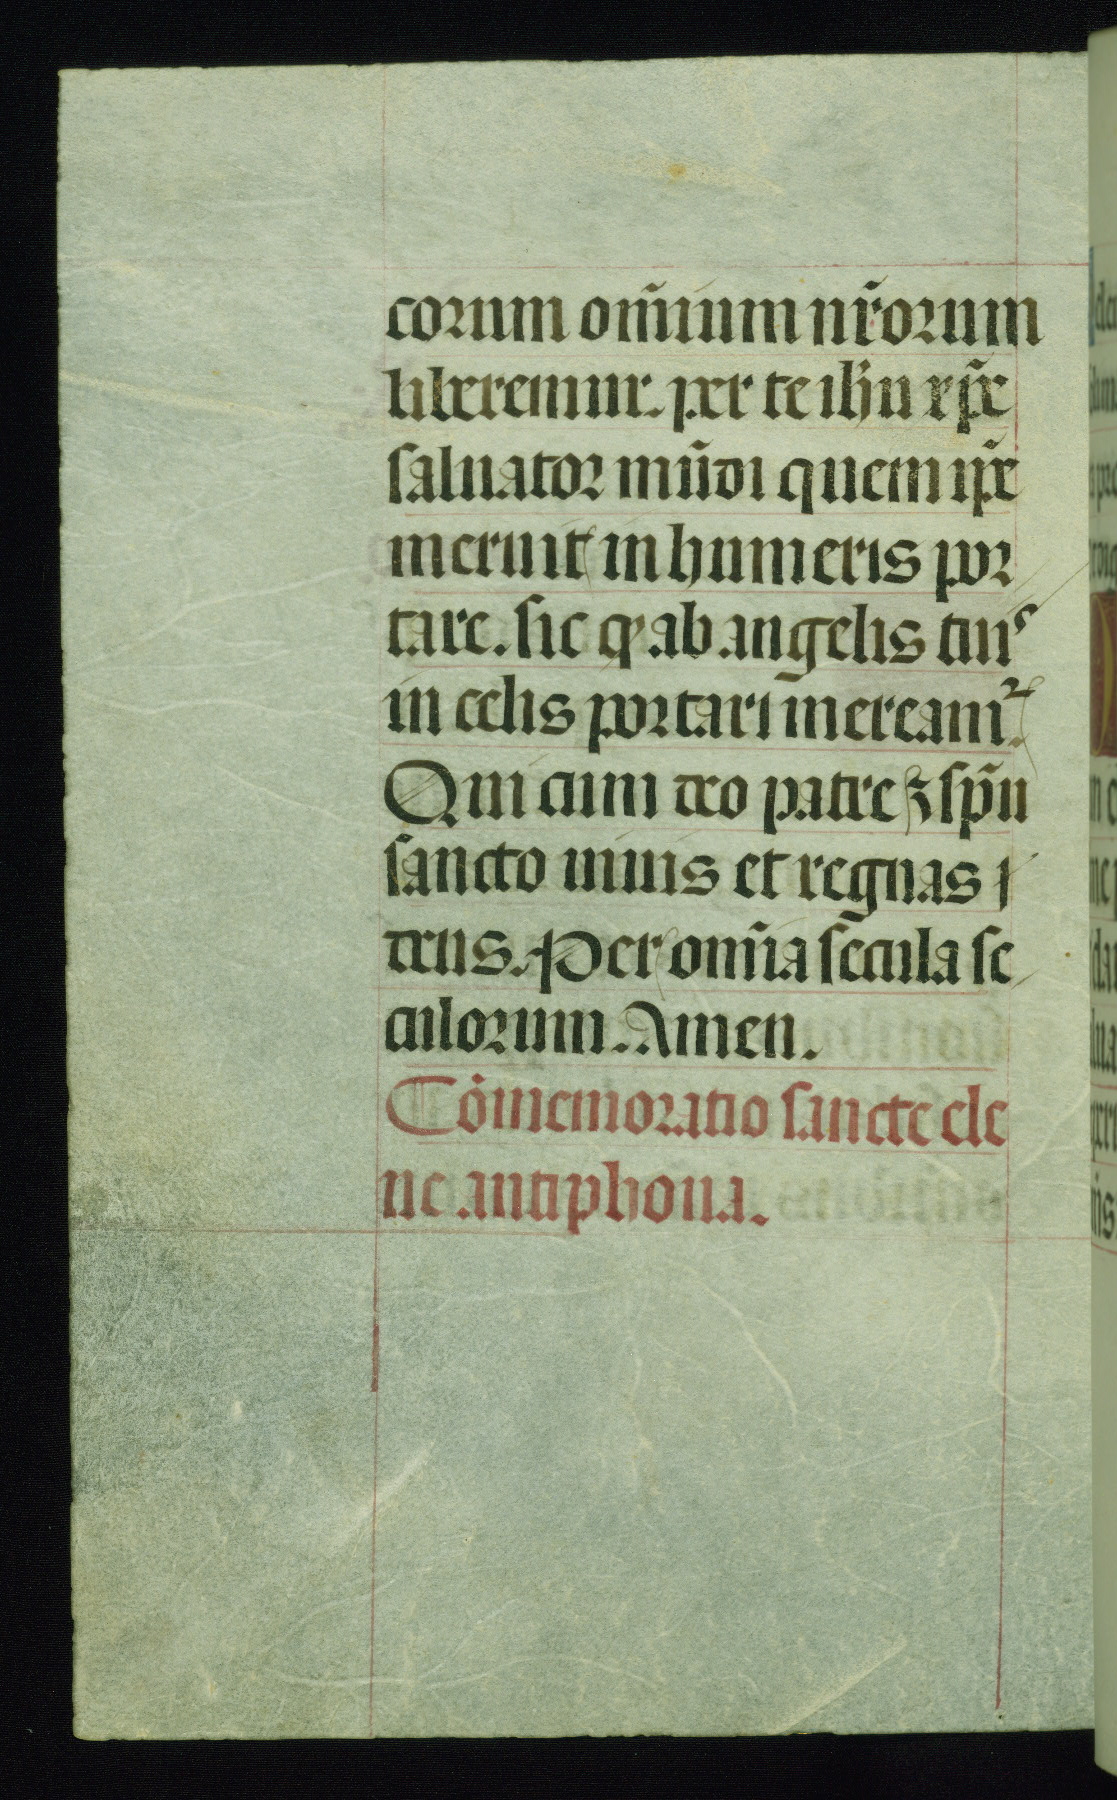 corum om̄ium nr̄orum
liberemur. per te ihū xp̄e
saluator mūdi quem ip̄e
meruit in humeris por
tare. sic qͥ ab angelis tuis
in celis portari mereamᷣ.
Qui cum deo patre ⁊ sp̄u
sancto uiuis et regnas ī
deus. Per om̄ia secula se
culorum. Amen.
Cōmemoratio sancte ele
ne antiphona.